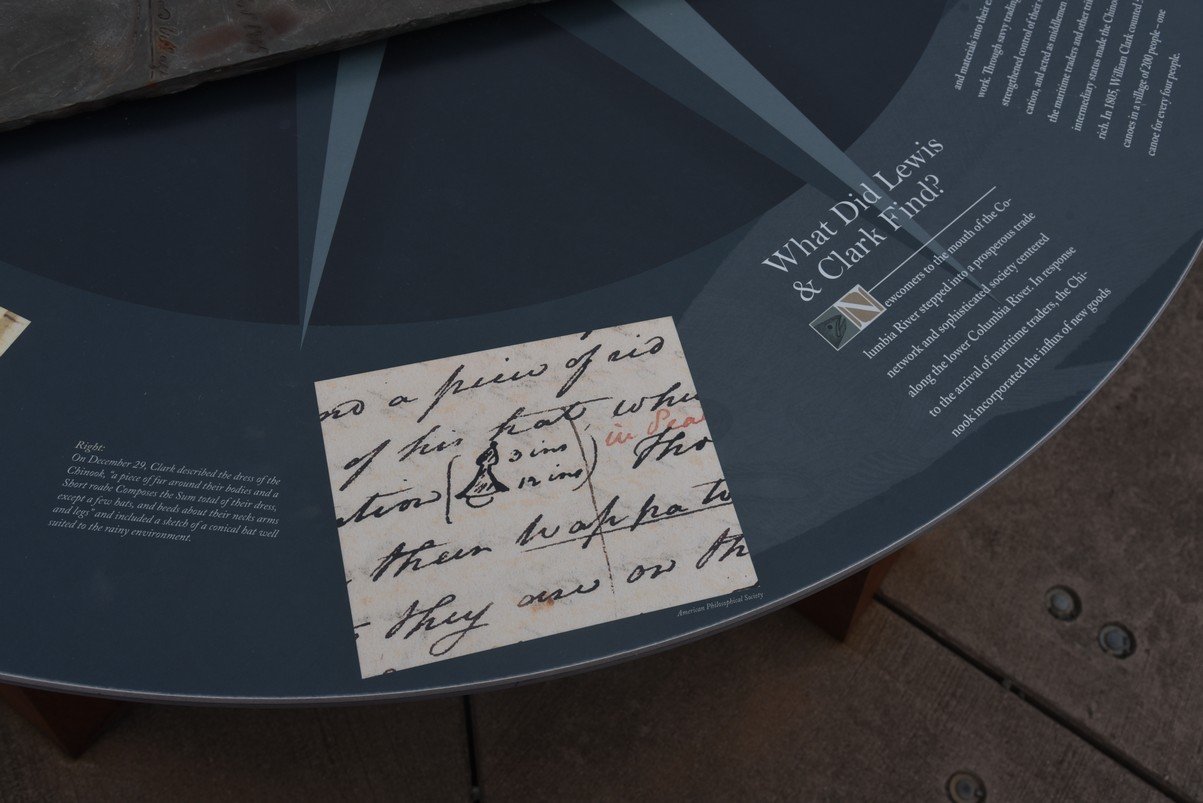 Right:
On December 29, Clark described the dress of the
Chinook, "a piece of fur around their bodies and a
Short roabe Composes the Sum total of their dress,
except a few hats, and beeds about their necks arms
and legs" and included a sketch of a conical hat well
suited to the rainy environment.
a piece of rid
of his hat whi
in Sea
ation ( 3 ins
12 ins ) Tho
their wappato
they are on th
American Philosophical Society
What Did Lewis
& Clark Find?
Newcomers to the mouth of the Co-
lumbia River stepped into a prosperous trade
network and sophisticated society centered
along the lower Columbia River. In response
to the arrival of maritime traders, the Chi-
nook incorporated the influx of new goods
and materials into their
work. Through savvy trading
strengthened control of their
cation, and acted as middlemen
the maritime traders and other tri
intermediary status made the Chinoo
rich. In 1805, William Clark counted
canoes in a village of 200 people – one
canoe for every four people.